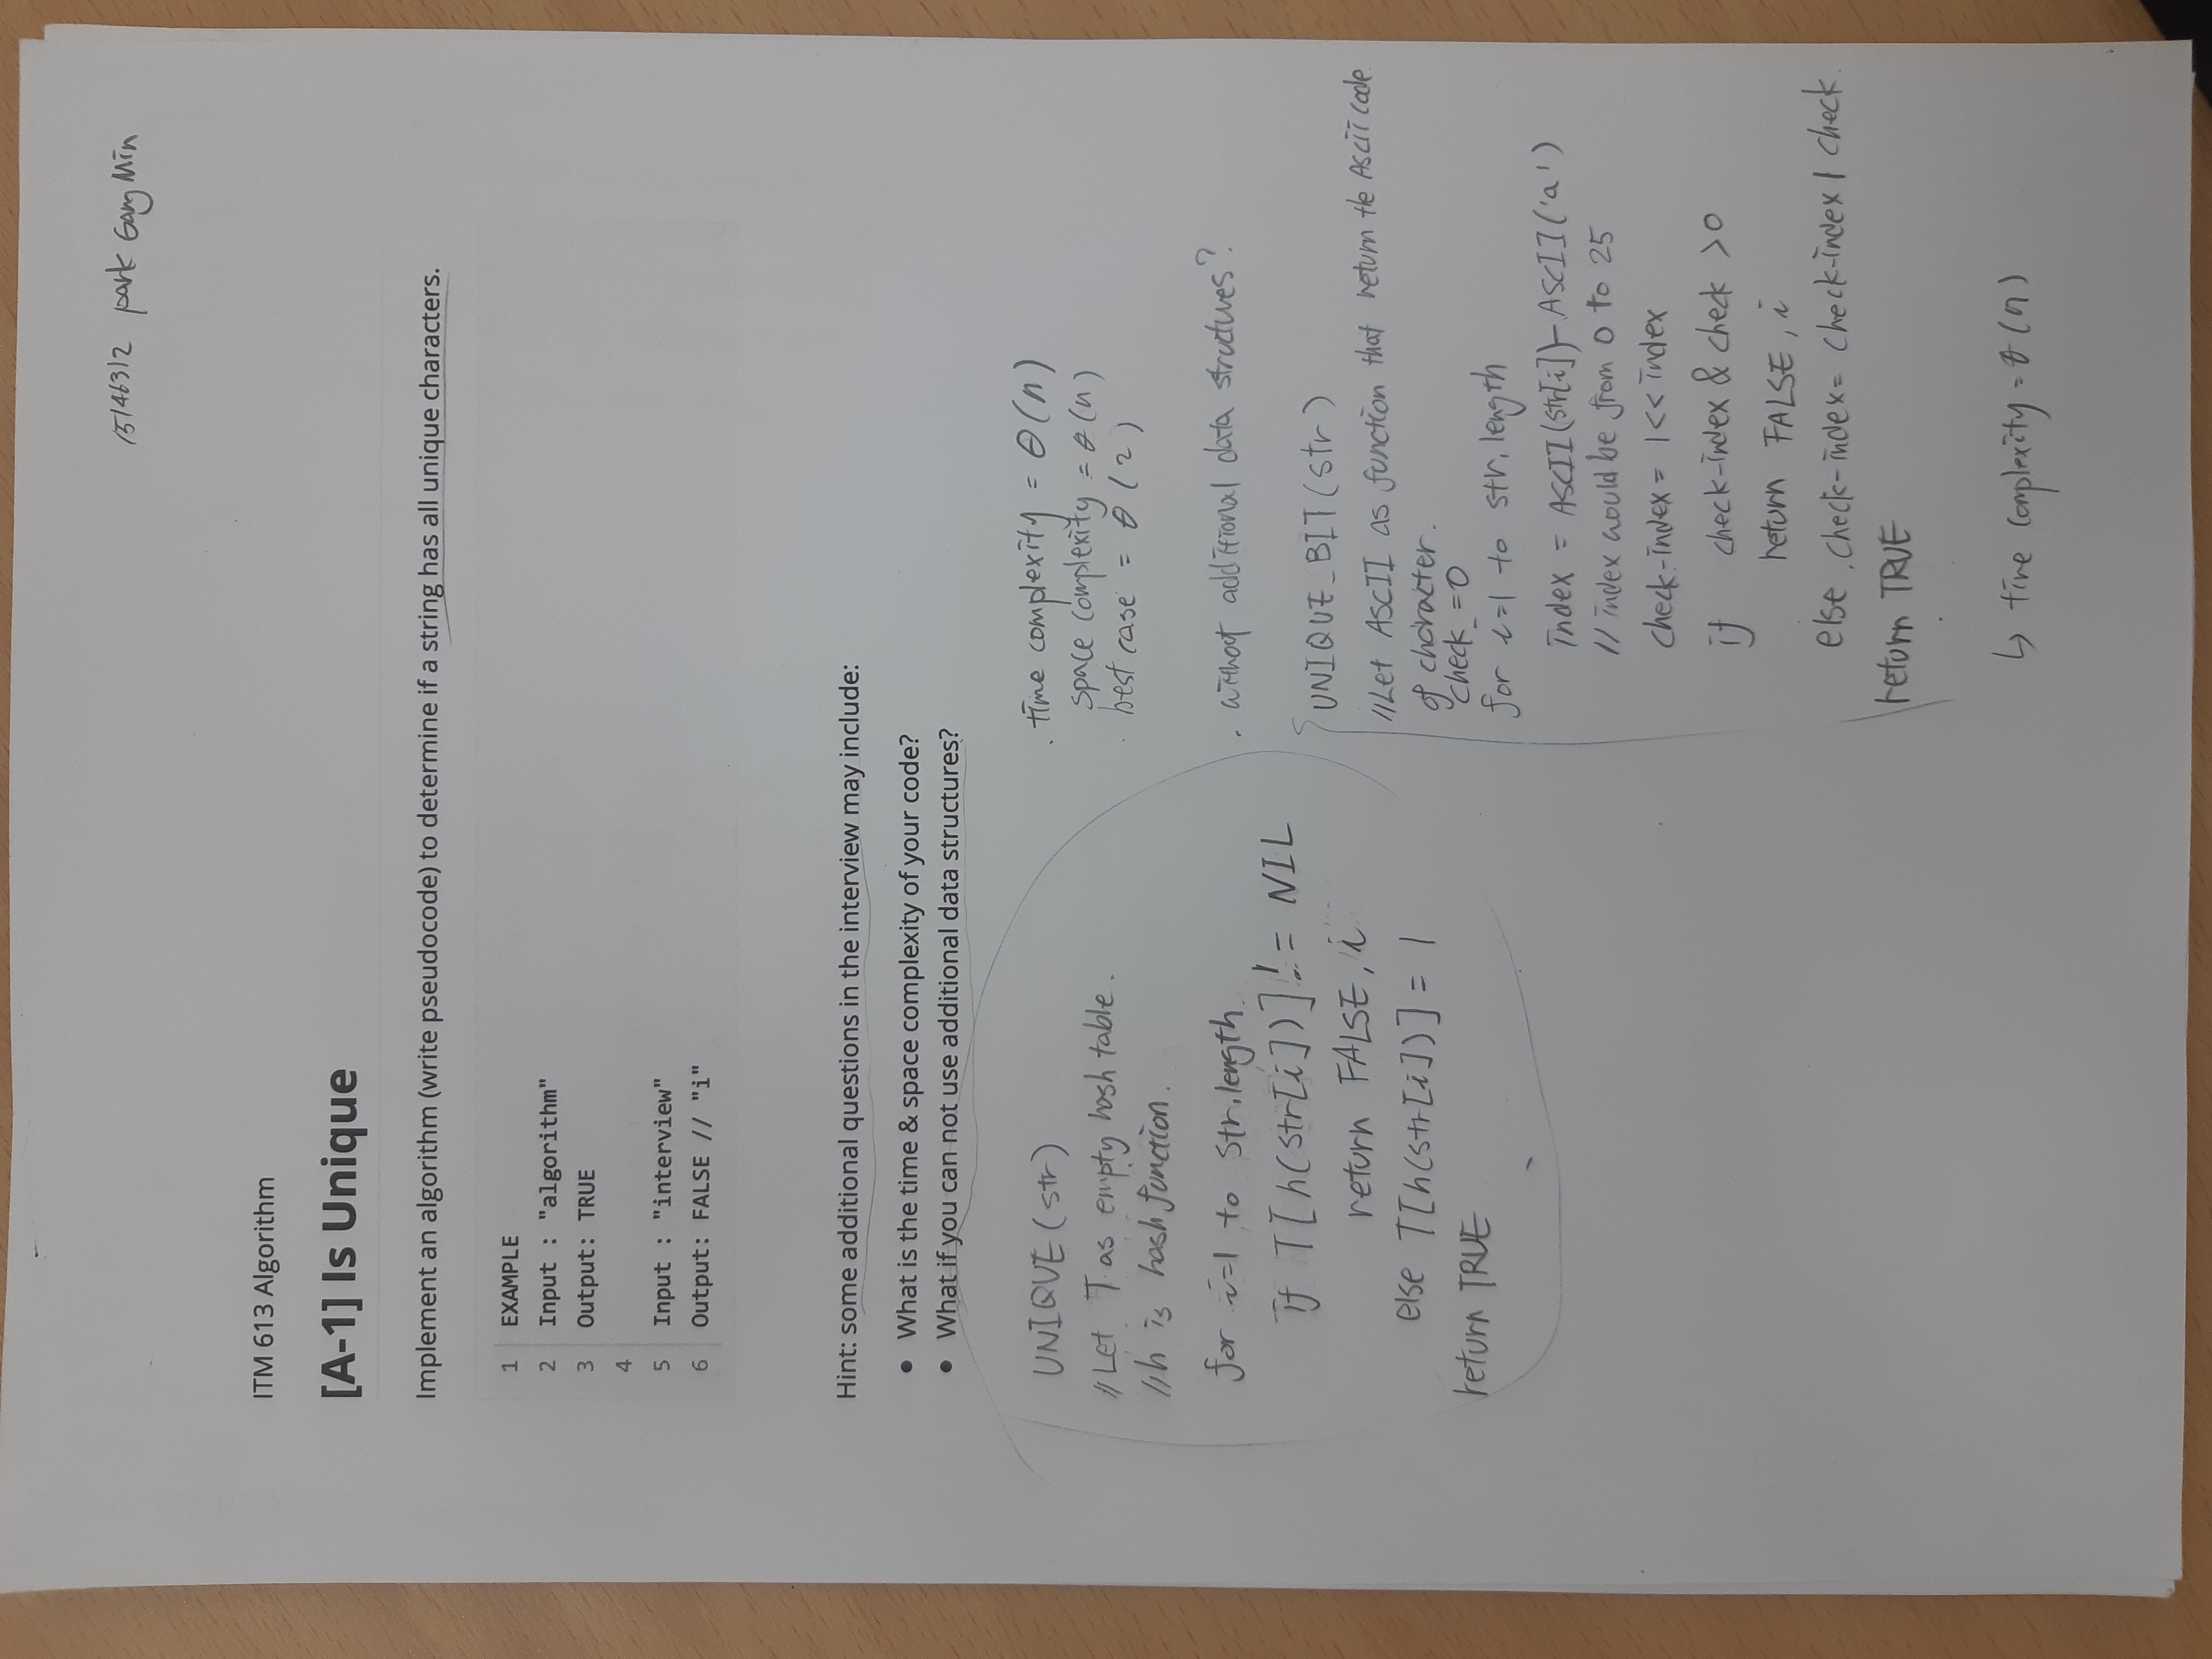 15146312 park Gang Min
ITM 613 Algorithm
[A-1] Is Unique
Implement an algorithm (write pseudocode) to determine if a string has all unique characters.
1 EXAMPLE
2 Input : "algorithm"
3 Output: TRUE
4
5 Input : "interview"
6 Output: FALSE // "i"
Hint: some additional questions in the interview may include:
• What is the time & space complexity of your code?
• What if you can not use additional data structures?
UNIQUE(str)
//Let T as empty hash table.
//h is hash function.
for i=1 to str.length
if T[h(str[i])] != NIL
return FALSE, i
else T[h(str[i])] = 1
return TRUE
. time complexity = θ(n)
space complexity = θ(n)
. best case = θ(2)
. without additional data structures?
UNIQUE_BIT(str)
//Let ASCII as function that return the Ascii code
of character.
check = 0
for i=1 to str.length
index = ASCII(str[i])-ASCII('a')
// index would be from 0 to 25
check-index = 1<< index
if check-index & check >0
return FALSE, i
else check-index = check-index | check
return TRUE
↳ time complexity = θ(n)